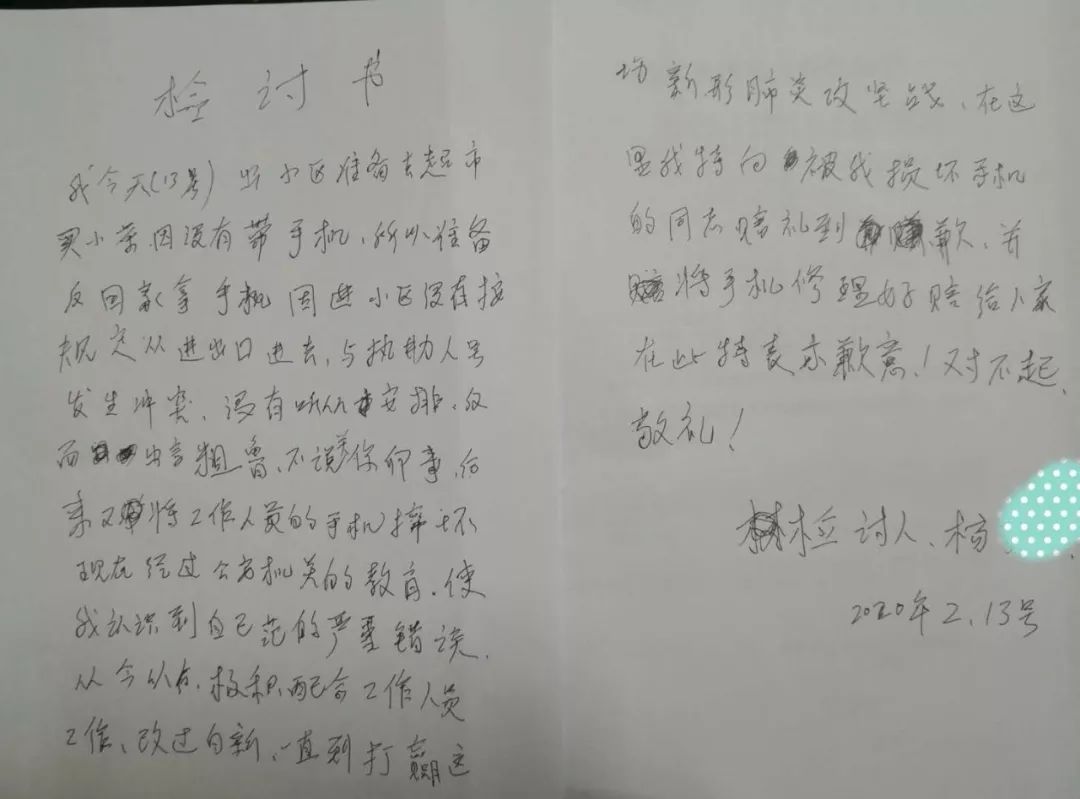 检讨书
我今天(13号)出小区准备去超市
买小菜因没有带手机、所以准备
反回家拿手机因进小区没有按
规定从进出口进去,与执勤人员
发生冲突、没有听从安排、反
而出言粗鲁、不说
又将工作人员的手机摔坏
现在经过公安机关的教育、使
我认识到自己范的严重错误、
从今以后、极积配合工作人员
工作、改过自新、一直到打赢这
场新形肺炎攻坚战、在这
里我特向被我损坏手机
的同志赔礼到歉、并
将手机修理好赔给人家
在此特表示歉意!对不起、
敬礼!
检讨人、杨
2020年2.13号